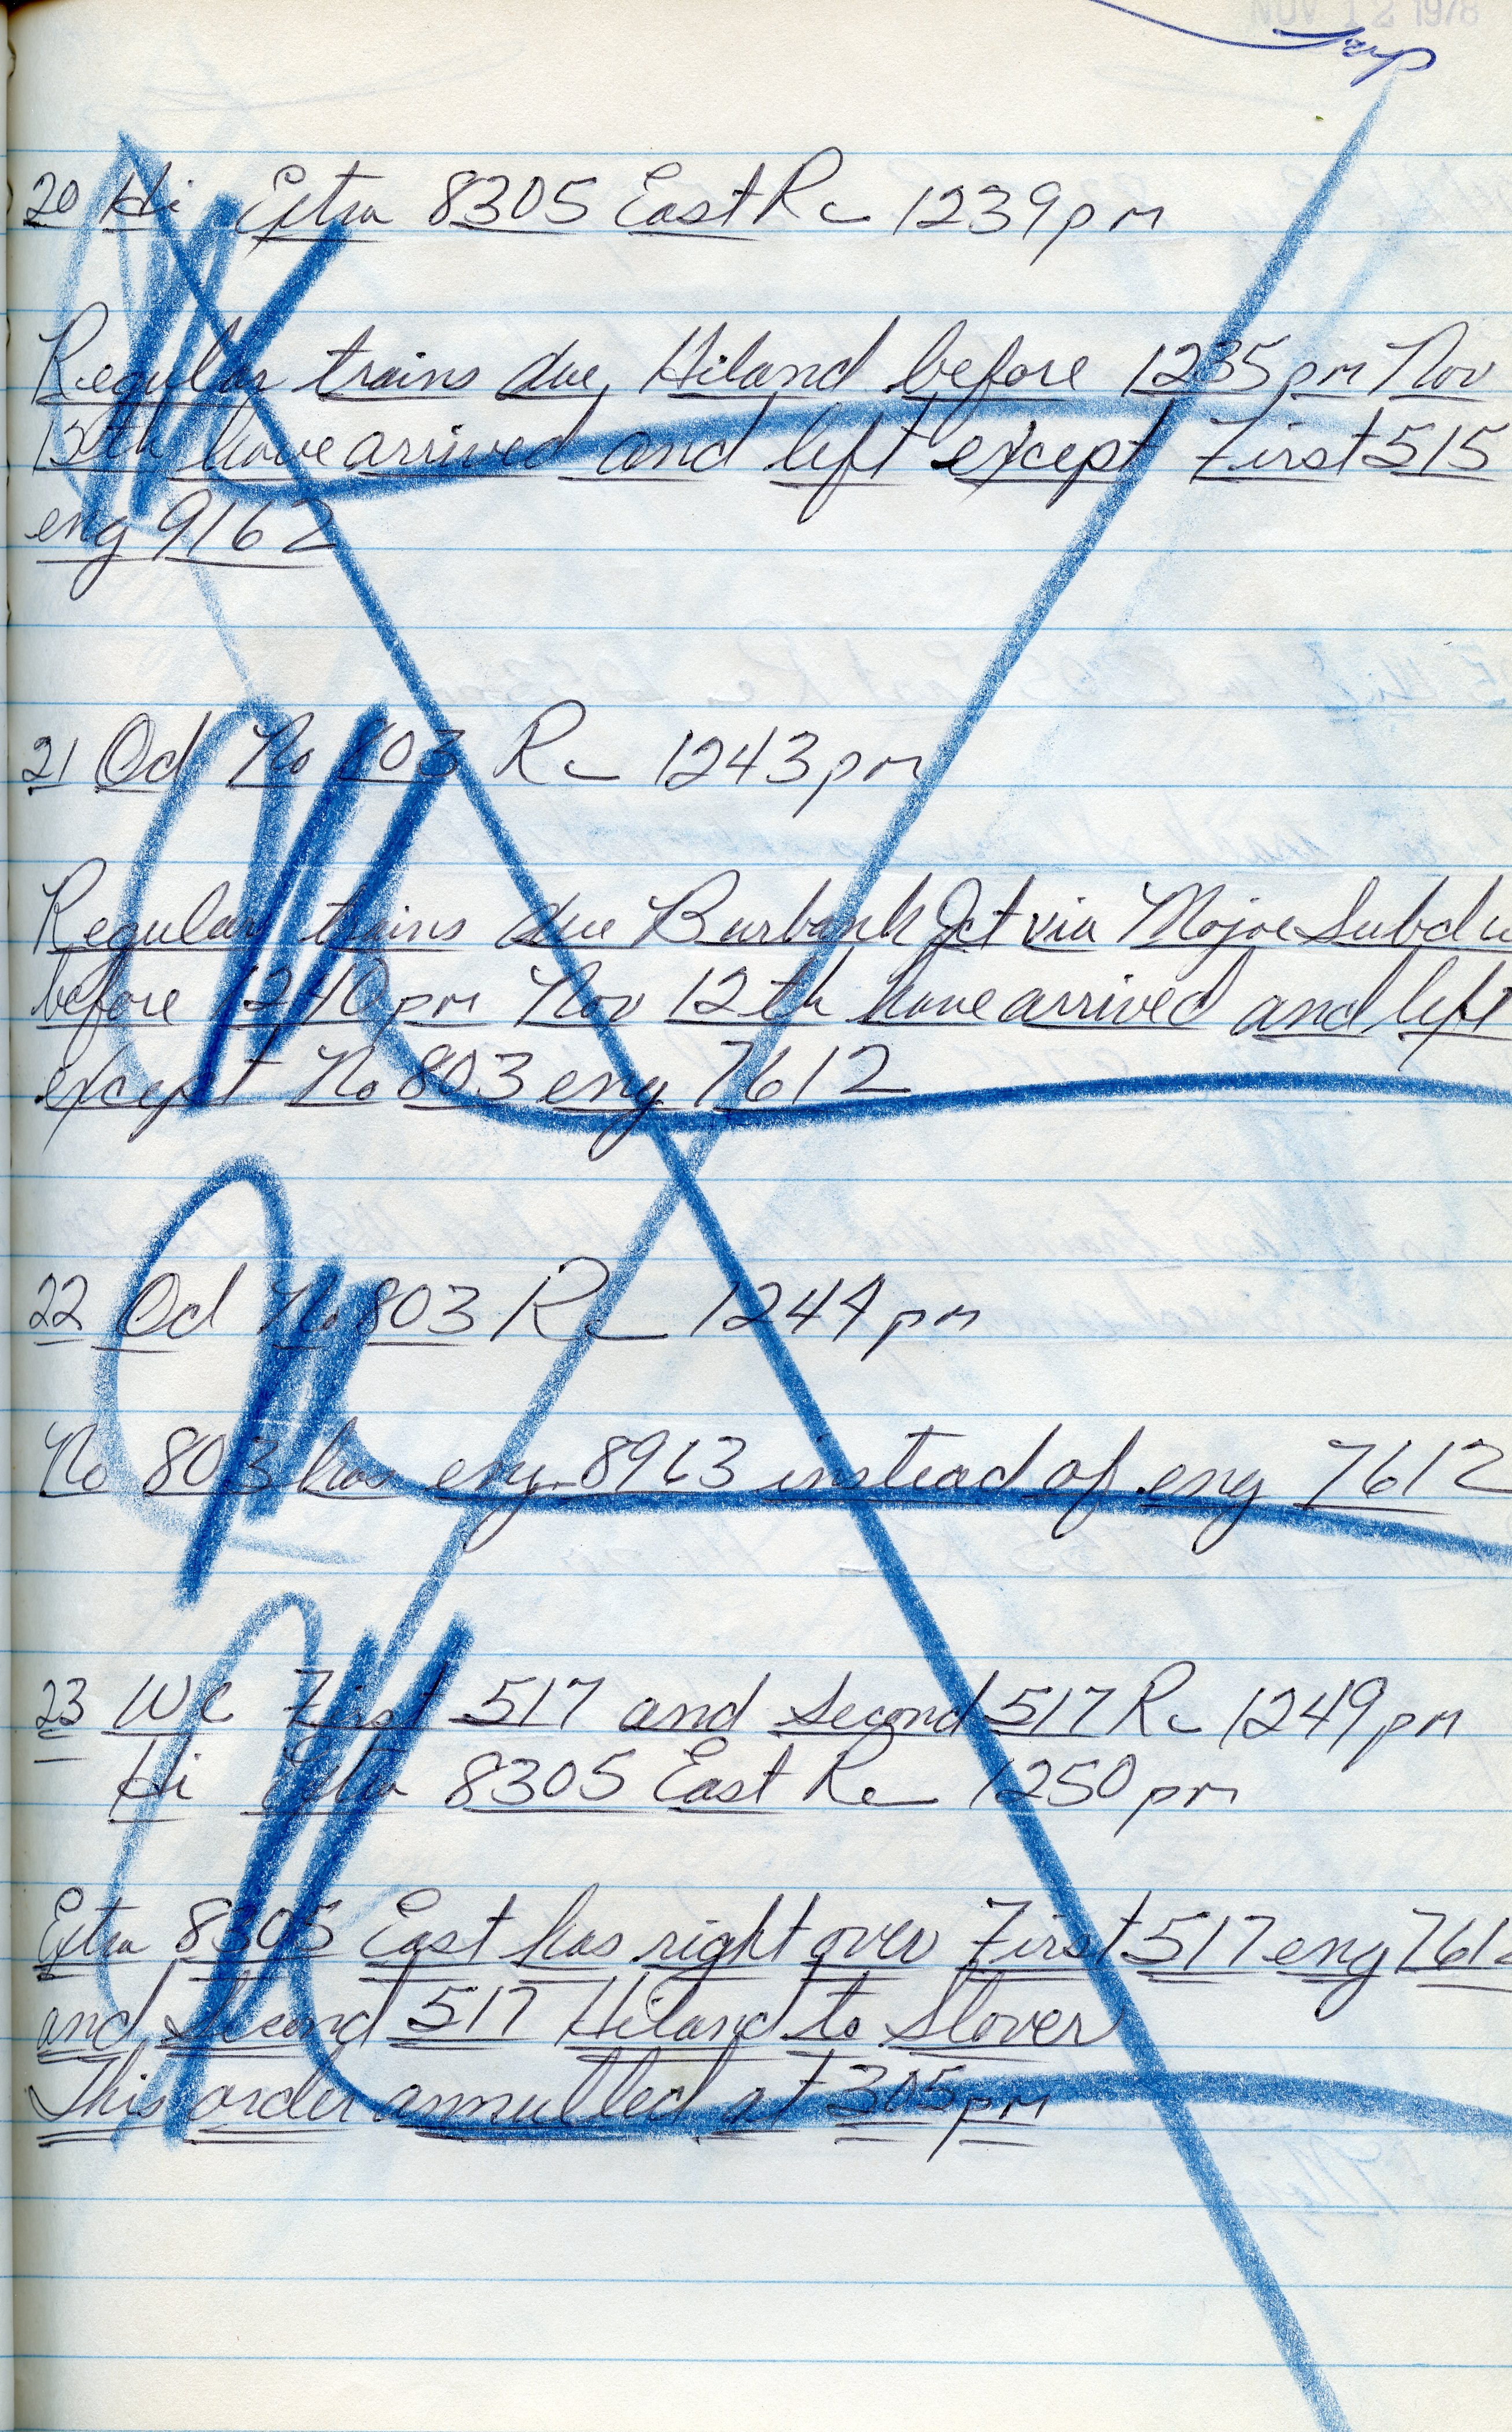 NOV 12 1978
20 Hi Extra 8305 East Rc 1239pm
Regular trains due Hiland before 1235pm Nov
have arrived and left except First 515
eng 9162
21 Od No 803 Rc 1243pm
Regular trains due Burbank Jct via Mojave Subdiv
before 1240pm Nov 12th have arrived and left
except No 803 eng 7612
22 Od No 803 Rc 1244pm
No 803 has eng 8963 instead of eng 7612
23 WC First 517 and Second 517 Rc 1249pm
Hi Extra 8305 East Rc 1250pm
Extra 8305 East has right over First 517 eng 7612
and Second 517 Hiland to Slover
This order annulled at 305pm